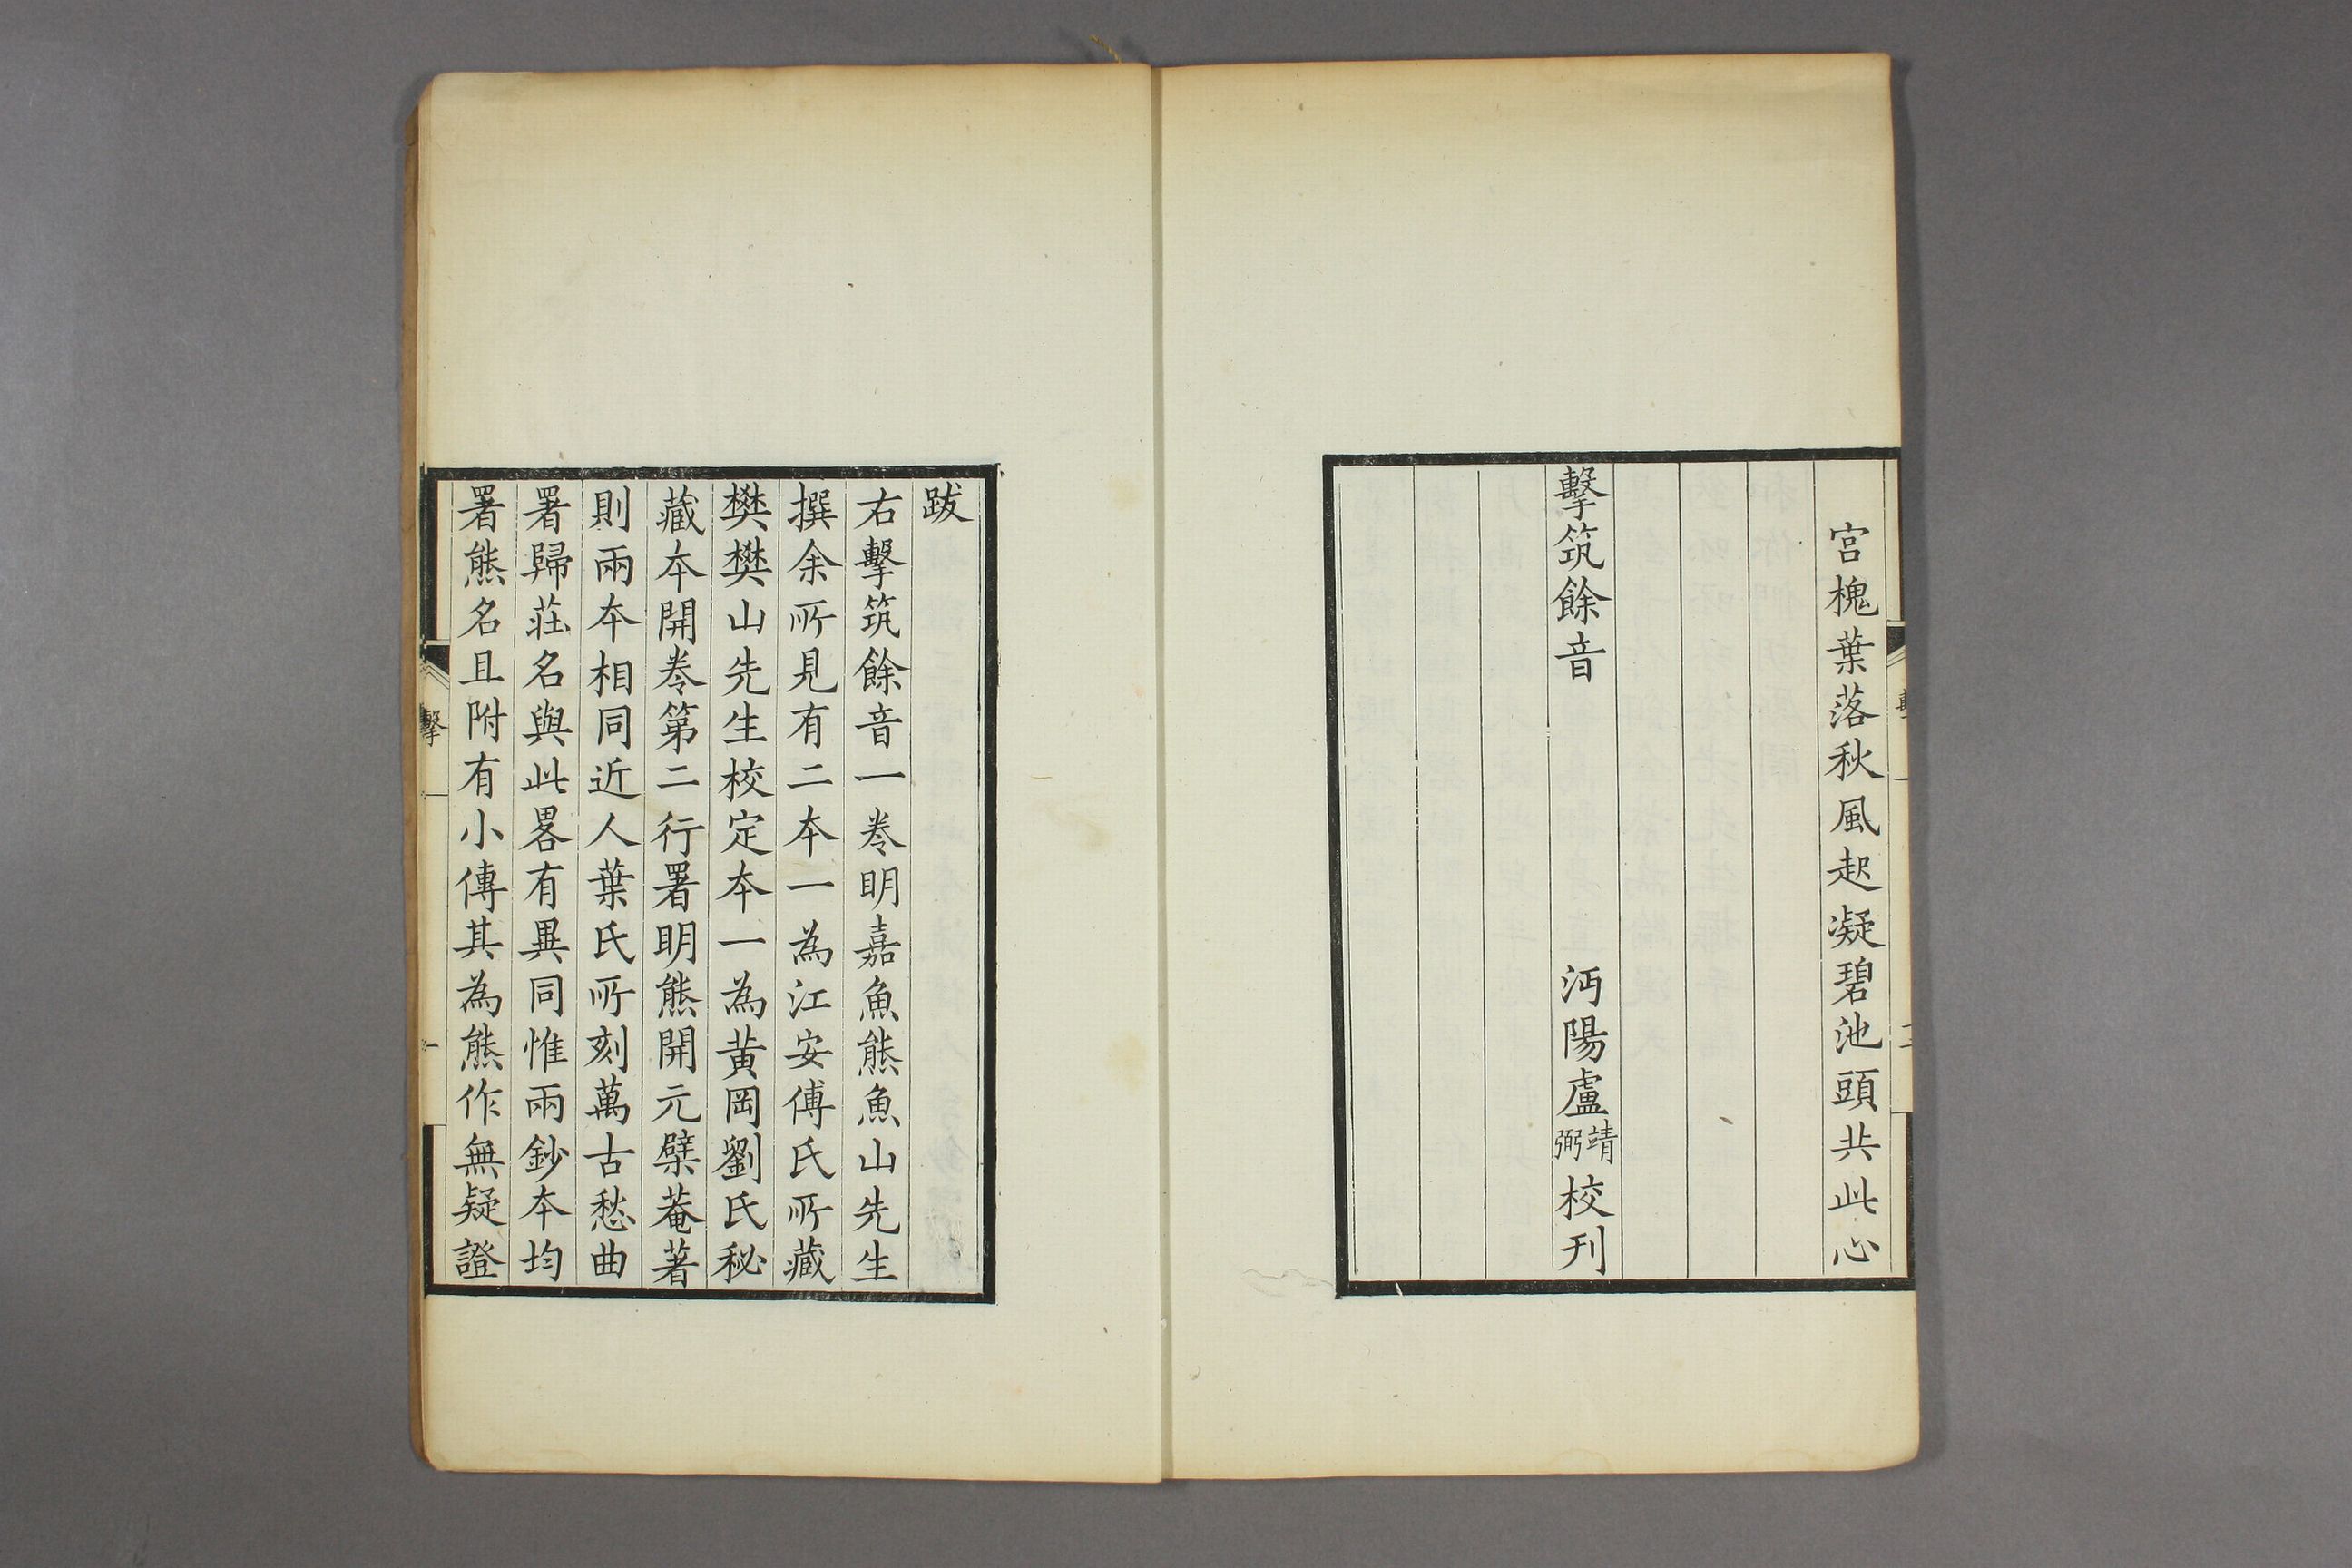 宮槐葉落秋風起凝碧池頭共此心
擊筑餘音 沔陽盧靖弼校刊
跋
右擊筑餘音一卷明嘉魚熊魚山先生
撰余所見有二本一為江安傅氏所藏
樊樊山先生校定本一為黃岡劉氏秘
藏本開卷第二行署明熊開元檗菴著
則兩本相同近人葉氏所刻萬古愁曲
署歸莊名與此畧有異同惟兩鈔本均
署熊名且附有小傳其為熊作無疑證
擊
一